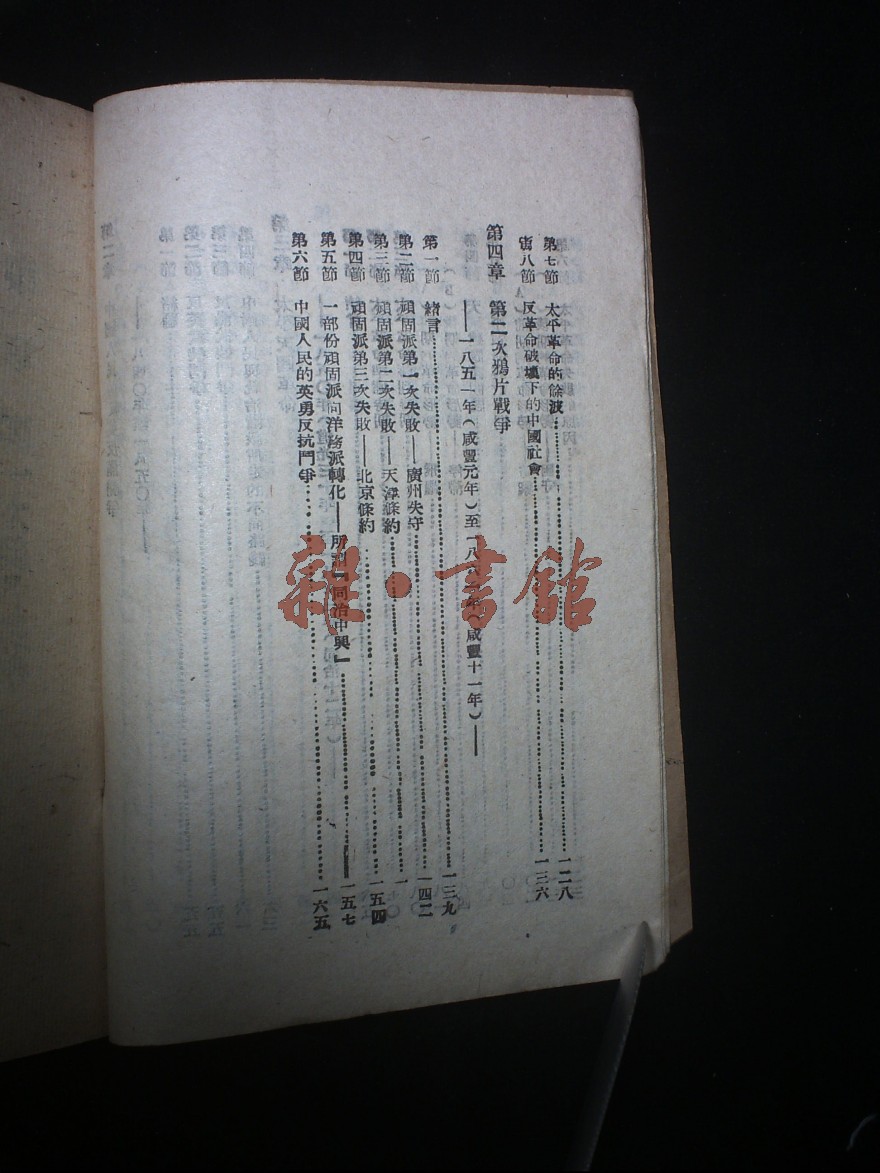 第七節 太平革命的餘波……一二八
第八節 反革命破壞下的中國社會……一三六
第四章 第二次鴉片戰爭
——一八五一年(咸豐元年)至一八六一年(咸豐十一年)——
第一節 緒言……一三九
第二節 頑固派第一次失敗——廣州失守……一四二
第三節 頑固派第二次失敗——天津條約……一
第四節 頑固派第三次失敗——北京條約……一五四
第五節 一部份頑固派向洋務派轉化——所謂『同治中興』……一五七
第六節 中國人民的英勇反抗鬥爭……一六五
雜·書館